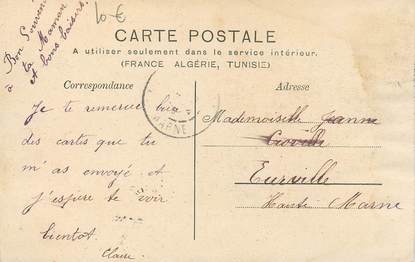 10-€
Bon Souvenir
à ta Maman
et bons baisers.
CARTE POSTALE
A utiliser seulement dans le service intérieur.
(FRANCE ALGÉRIE, TUNISIE)
Correspondance
Adresse
Je te remercie bien
des cartes que tu
m'as envoyé et
j'espère te voir
bientot.
Claire.
MARNE
Mademoiselle Jeanne
Eurville
Haute Marne